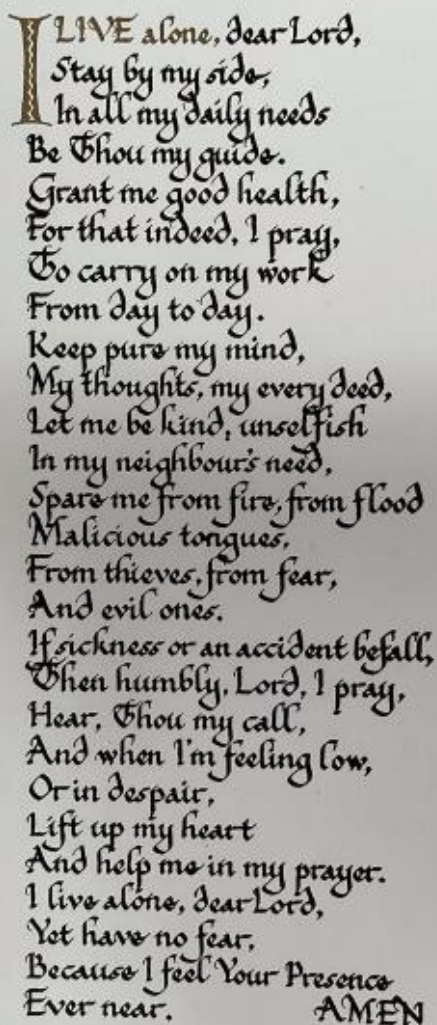 I LIVE alone, dear Lord,
Stay by my side,
In all my daily needs
Be Thou my guide.
Grant me good health,
For that indeed, I pray,
To carry on my work
From day to day.
Keep pure my mind,
My thoughts, my every deed,
Let me be kind, unselfish
In my neighbour's need,
Spare me from fire, from flood
Malicious tongues,
From thieves, from fear,
And evil ones.
If sickness or an accident befall,
Then humbly, Lord, I pray,
Hear, Thou my call,
And when I'm feeling low,
Or in despair,
Lift up my heart
And help me in my prayer.
I live alone, dear Lord,
Yet have no fear,
Because I feel Your Presence
Ever near. AMEN